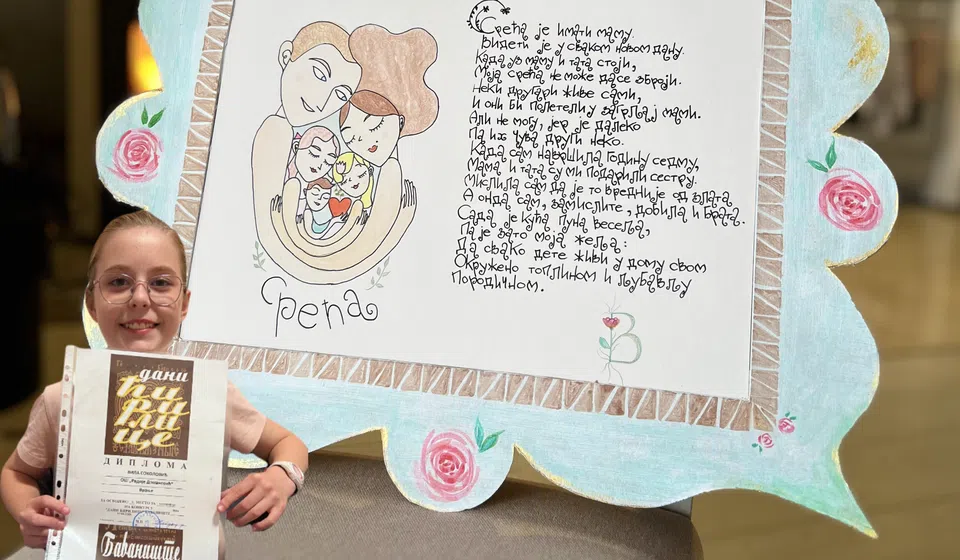 Срећа је имати маму.
Видети је у сваком новом дану.
Када уз маму и тата стоји,
Моја срећа не може да се зброји.
Неки другари живе сами,
И они би полетели у загрљај мами.
Али не могу, јер је далеко
Па их чува други неко.
Када сам навршила годину седму,
Мама и тата су ми подарили сестру.
Мислила сам да је то вредније од злата
А онда сам, замислите, добила и брата.
Сада је кућа пуна весеља,
Па је зато моја жеља:
Да свако дете живи у дому свом
Окружено топлином и љубављу
Породичном.
Срећа
В
дани
ћи
ри
ли
це
ДИПЛОМА
ОШ „Радоје Домановић“
Врање
Баваниште